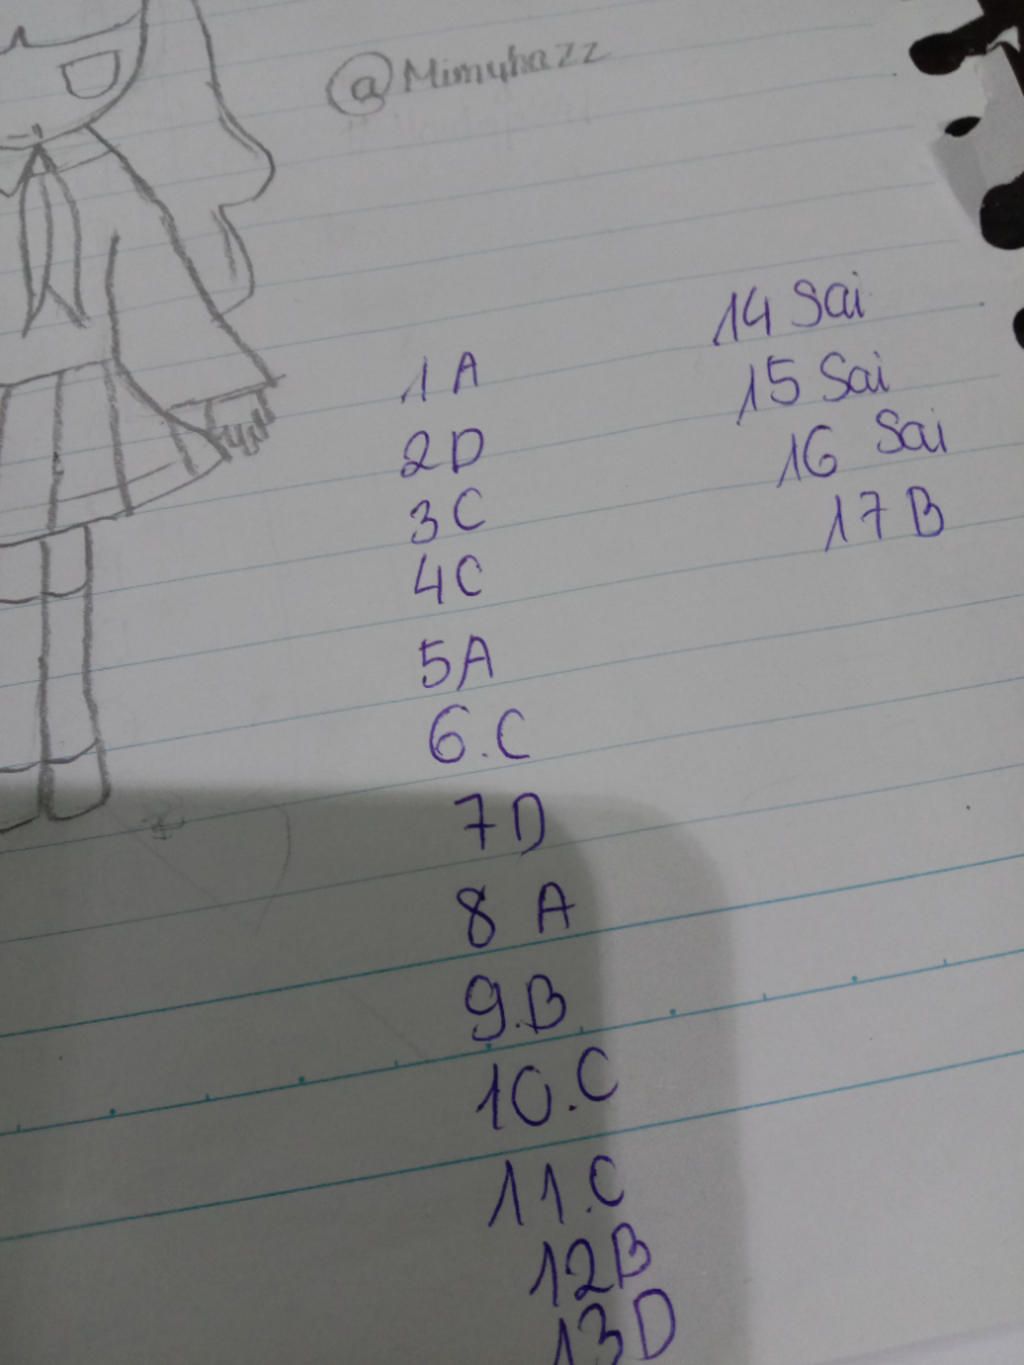 @Mimyhazz
1 A
2 D
3 C
4 C
5 A
6. C
7 D
8 A
9. B
10. C
11. C
12 B
13 D
14 Sai
15 Sai
16 Sai
17 B